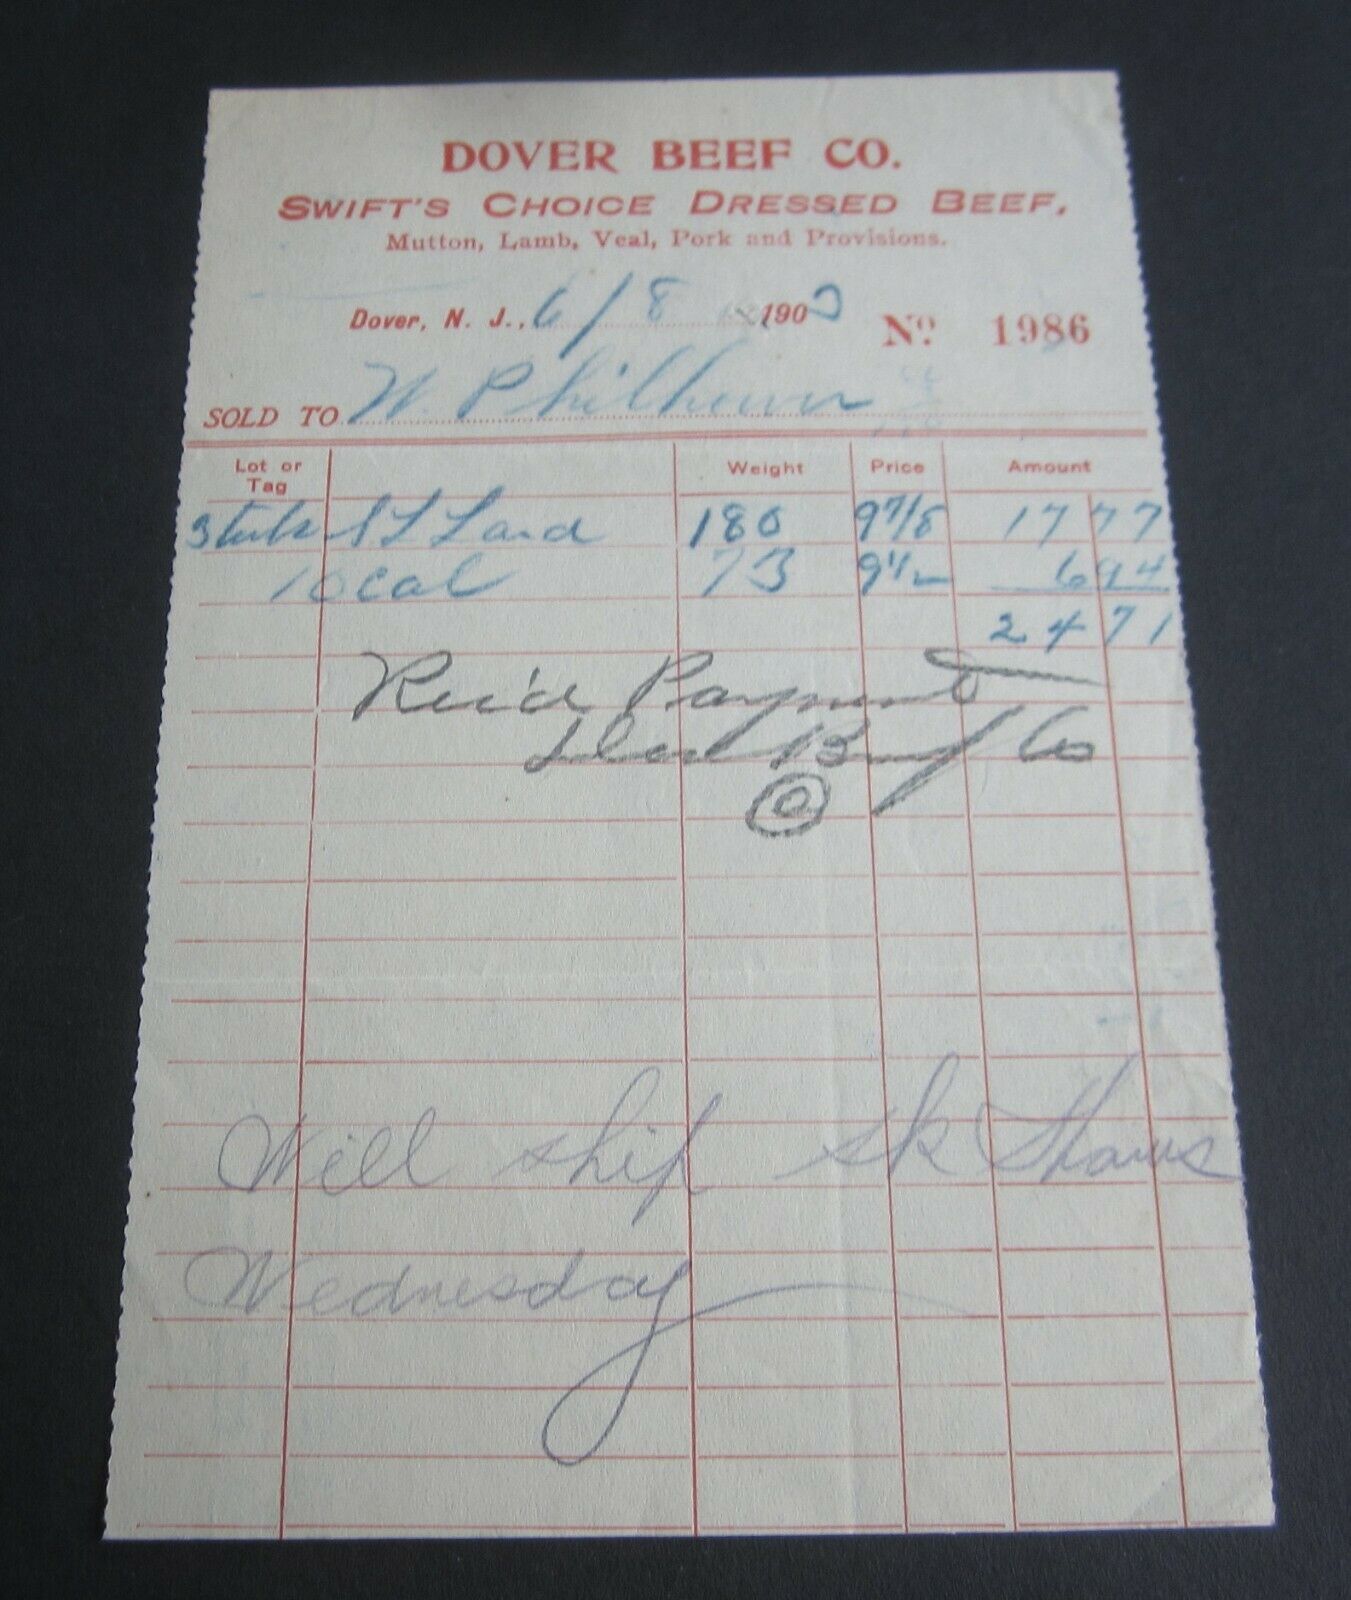 DOVER BEEF CO.
SWIFT'S CHOICE DRESSED BEEF,
Mutton, Lamb, Veal, Pork and Provisions.
Dover, N. J., 6/8 1903 No. 1986
SOLD TO W. Philhower
Lot or Tag Weight Price Amount
3 S L Lard 180 9 7/8 17 77
1 0 Cal 73 9 1/2 6 94
24 71
Rec'd Payment
Dover Beef Co
Will ship sk Shams
Wednesday